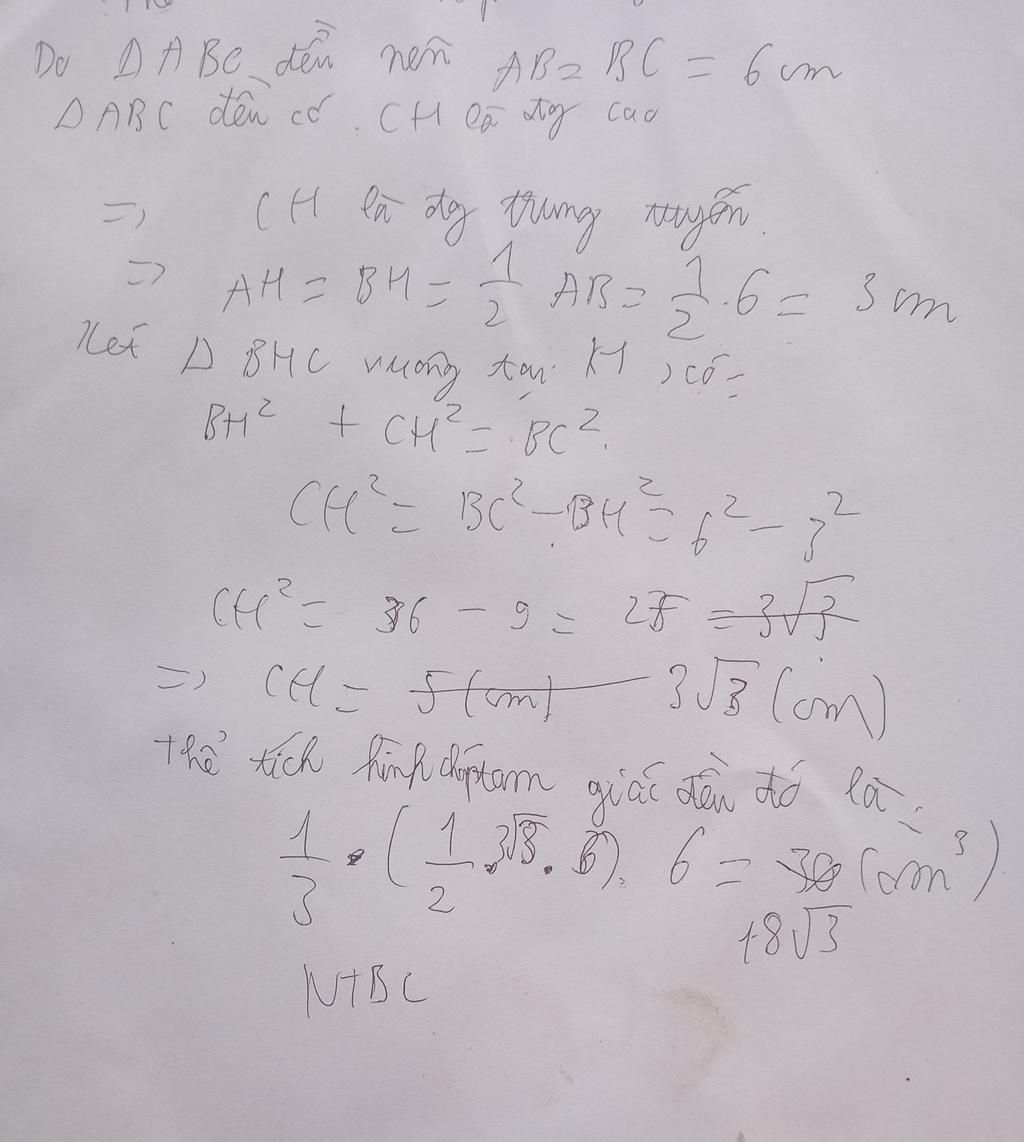 Do Δ ABC đều nên AB = BC = 6 cm
Δ ABC đều có . CH là đg cao
=> CH là đg trung tuyến.
=> AH = BH = 1/2 AB = 1/2 . 6 = 3 cm
Xét Δ BHC vuông tại H , có :
BH² + CH² = BC².
CH² = BC² - BH² = 6² - 3²
CH² = 36 - 9 = 27 = 3√3
=> CH = 5 (cm) 3√3 (cm)
thể tích hình chóp tam giác đều đó là :
1/3 . ( 1/2 . 3√3 . 6 ) . 6 = 30 (cm³)
18√3